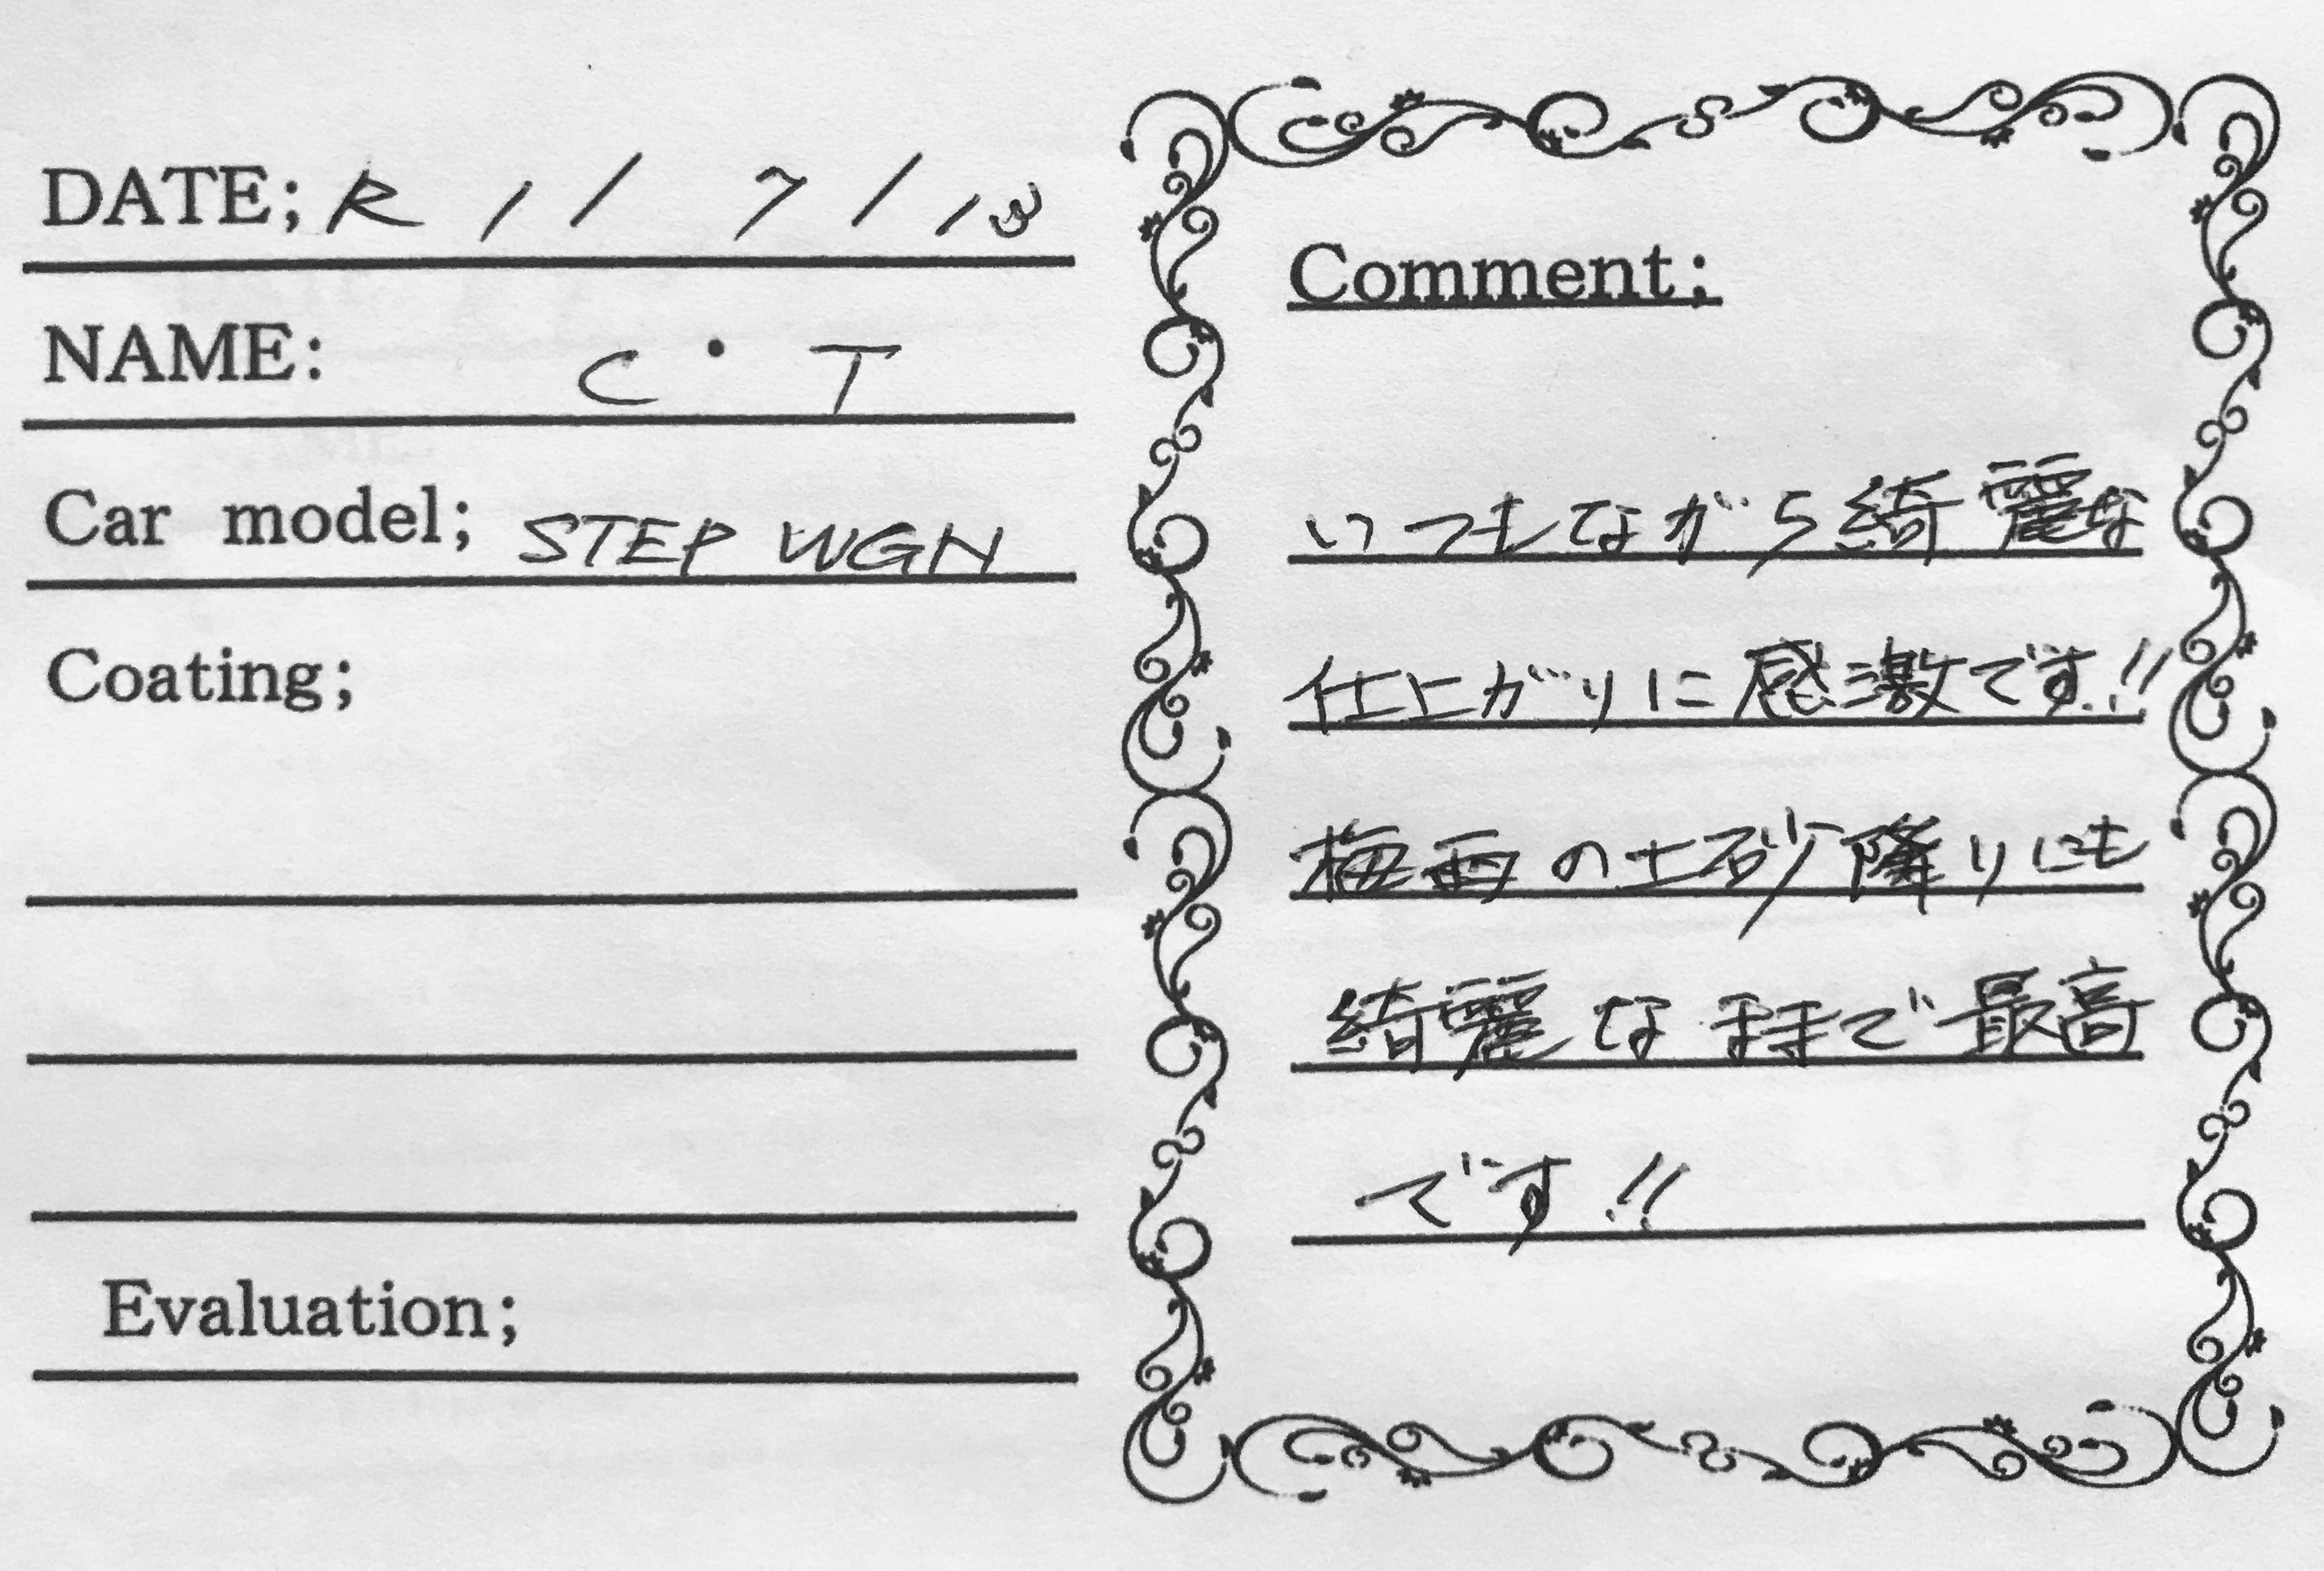 DATE; R 1 / 7 / 13
NAME: C・T
Car model; STEP WGN
Coating;
Evaluation;
Comment;
いつもながら綺麗な
仕上がりに感激です!!
梅雨の土砂降りにも
綺麗なままで最高
です!!